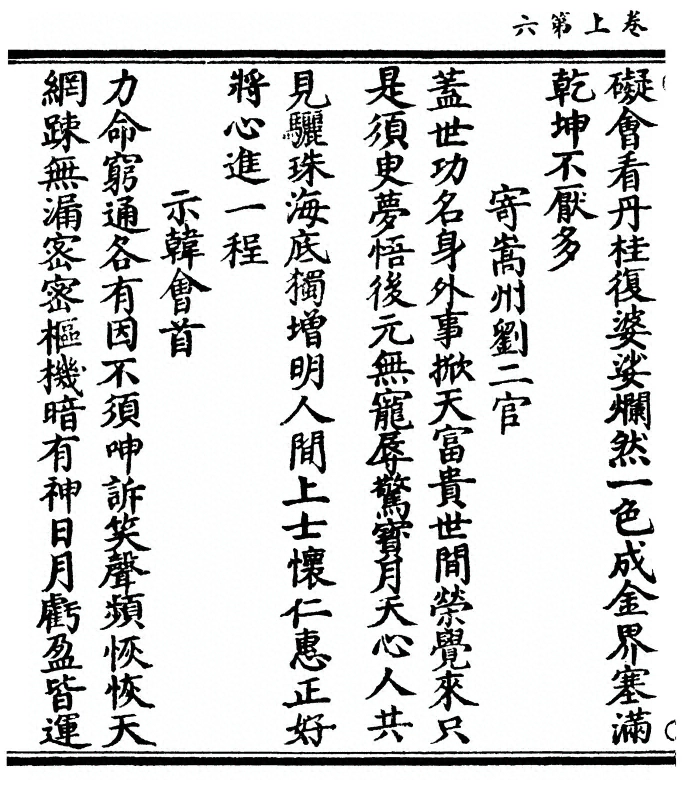 卷上第六
礙會看丹桂復婆娑爛然一色成金界塞滿
乾坤不厭多
寄嵩州劉二官
蓋世功名身外事掀天富貴世間榮覺來只
是須臾夢悟後元無寵辱驚寶月天心人共
見驪珠海底獨增明人間上士懷仁惠正好
將心進一程
示韓會首
力命窮通各有因不須呻訴笑聲頻恢恢天
網踈無漏密密樞機暗有神日月虧盈皆運